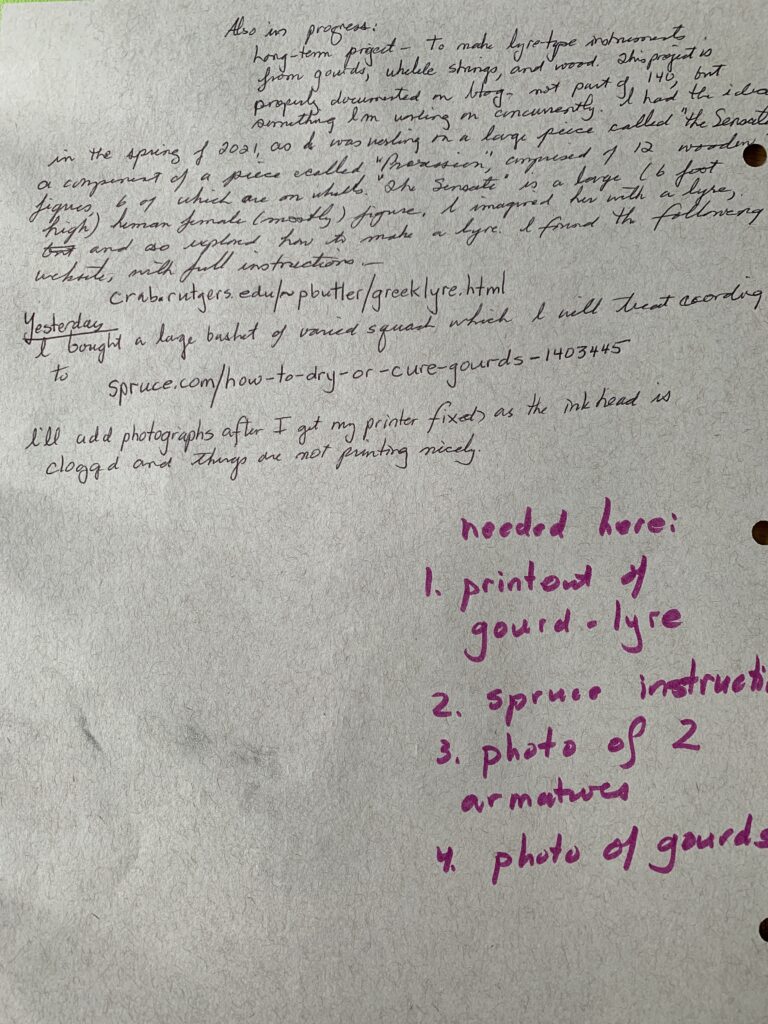 Also in progress:
Long-term project - to make lyre-type instruments
from gourds, ukelele strings, and wood. This project is
properly documented on blog - not part of 140, but
something I'm working on concurrently. I had the idea
in the spring of 2021, as I was working on a large piece called "the Sensate"
a component of a piece called "Procession", comprised of 12 wooden
figures, 6 of which are on wheels. "The Sensate" is a large (6 foot
high) human female (mostly) figure. I imagined her with a lyre,
and so explored how to make a lyre. I found the following
website, with full instructions -
crab.rutgers.edu/~pbutler/greeklyre.html
Yesterday
I bought a large basket of varied squash which I will treat acording
to
spruce.com/how-to-dry-or-cure-gourds-1403445
I'll add photographs after I get my printer fixed, as the ink head is
clogged and things are not printing nicely.
needed here:
1. printout of
gourd-lyre
2. spruce instructi
3. photo of 2
armatures
4. photo of gourds